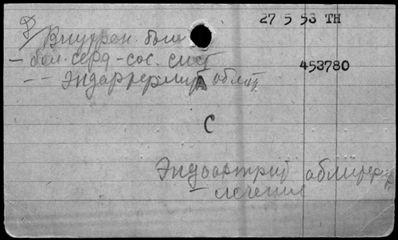 27 5 58 TH
Внутрен. бол
— бол. серд-сос. сист
453780
-- Эндартериит облит
С
Эндоартриит облитер
лечение